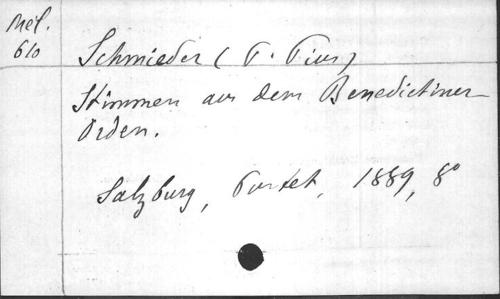 Mél.
610
Schmieder (P. Pius)
Stimmen aus dem Benedictiner
Orden.
Salzburg, Pustet, 1889, 8°